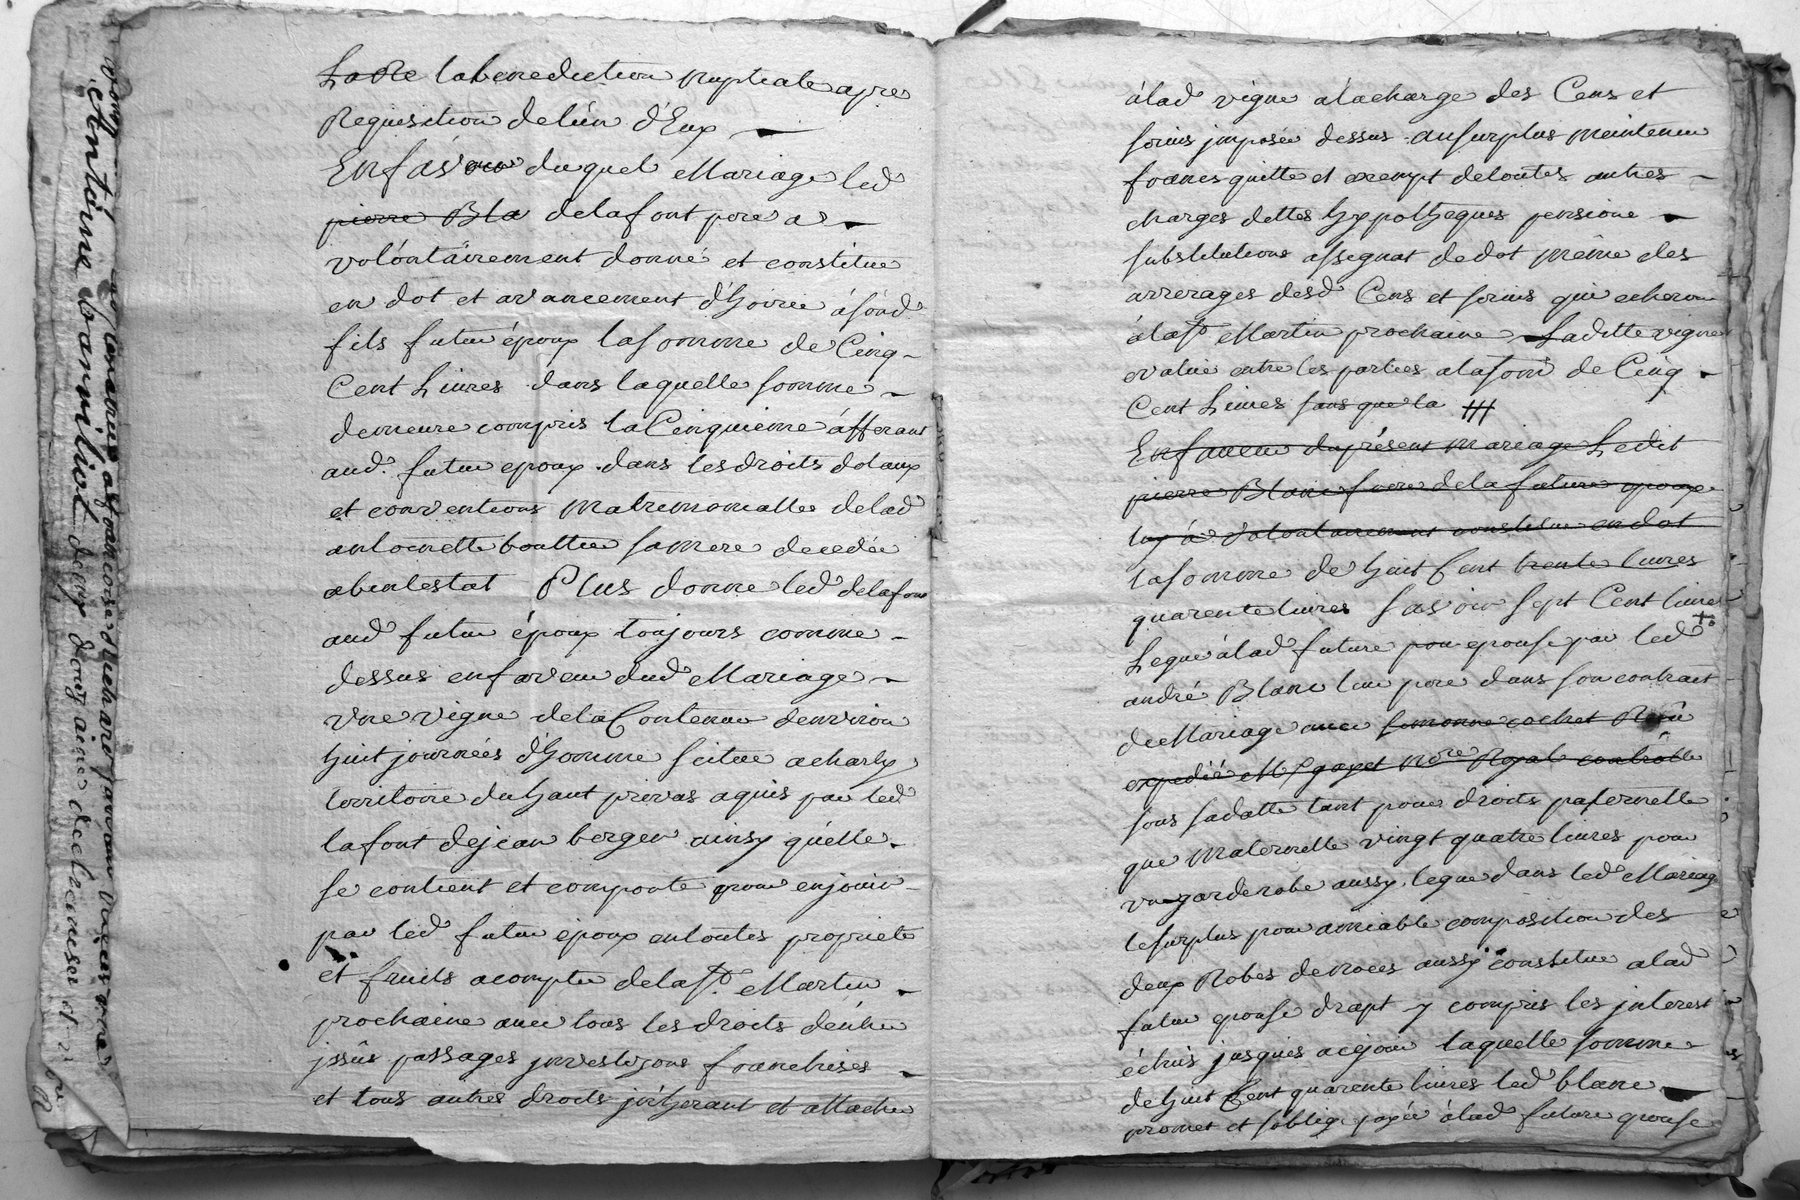 la benediction nuptiale apres
Requisition de l'un d'Eux
En faveur duquel Mariage led
pierre Bla delafont pere a
volontairement donné et constitue
en dot et avancement d'hoirie a sond
fils futur époux la somme de Cinq
Cent Livres dans laquelle somme
demeure compris la Cinquieme afferant
aud. futur epoux dans les droits dotaux
et conventions matrimonialle de lad
antoinette bouttier sa mere decedée
abintestat Plus donne led delafont
aud futur époux toujours comme
dessus en faveur dud Mariage
vne vigne de la Contenue denviron
huit journées d'homme scitue a charly
territoire du haut privas aquis par led
lafont de jean berger ainsy quelle
se contient et comporte pour en jouir
par led futur epoux en toutes proprieté
et fruits a compter de la st. Martin
prochaine avec tous les droits d'entrer
jssus passages jnvestizons franchises
et tous autres droits jnherant et attachés
à lad vigne a la charge des Cens et
servis jmposée dessus au surplus maintenue
franes quitte et exempt de toutes autres
charges dettes hypotheques pensions
substitutions assignat de dot même des
arrerages desd Cens et servis qui echeron
a la st Martin prochaine Laditte vigne
evaluée entre les parties a la som de Cinq
Cent Livres sans que la
En faveur du présent mariage Ledit
pierre Blanc frere de la future epoux
luy a volontairement constitue en dot
la somme de huit Cent trente livres
quarente livres savoir sept Cent livres
Legué à lad future pou epouse par led
andré Blanc leur pere dans son contrait
de Mariage avec simonne cochet Reçu
expedié Me gayet nore Royal controlle
sous sa datte tant pour droits paternelle
que maternelle vingt quatre livres pour
vn garderobe aussy legue dans led Mariag
le surplus pour amiable composition des
deux Robes de noces aussy constitue a lad
futur epouse drapt y compris les jnterest
échus jusques a cejour laquelle somme
de huit Cent quarente livres led blanc
promet et soblige payer à lad future epouse
Antoine